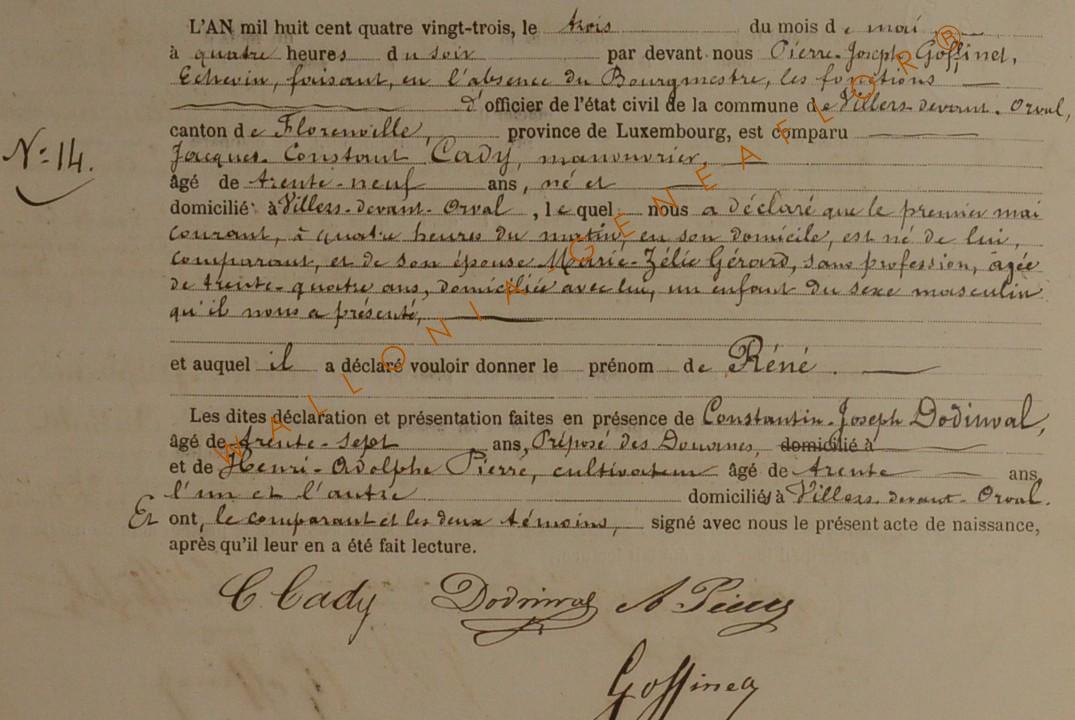 L'AN mil huit cent quatre vingt-trois, le trois du mois de mai
à quatre heures du soir par devant nous Pierre-Joseph Goffinet,
Echevin, faisant, en l'absence du Bourgmestre, les fonctions
d'officier de l'état civil de la commune de Villers-devant-Orval,
canton de Florenville, province de Luxembourg, est comparu
N° 14.
Jacques-Constant Cady, manouvrier,
âgé de trente-neuf ans, né et
domicilié à Villers-devant-Orval, lequel nous a déclaré que le premier mai
courant, à quatre heures du matin, en son domicile, est né de lui,
comparant, et de son épouse Marie-Zélie Gérard, sans profession, agée
de trente-quatre ans, domiciliée avec lui, un enfant du sexe masculin
qu'il nous a présenté,
et auquel il a déclaré vouloir donner le prénom de Réné.
Les dites déclaration et présentation faites en présence de Constantin-Joseph Dodinval,
âgé de trente-sept ans, Préposé des Douanes, domicilié à
et de Henri-Adolphe Pierre, cultivateur âgé de trente ans,
l'un et l'autre domiciliés à Villers-devant-Orval.
Et ont, le comparant et les deux témoins, signé avec nous le présent acte de naissance,
après qu'il leur en a été fait lecture.
C Cady Dodinval A Pierre
Goffinet
WALLONIA GENEAFLOR®